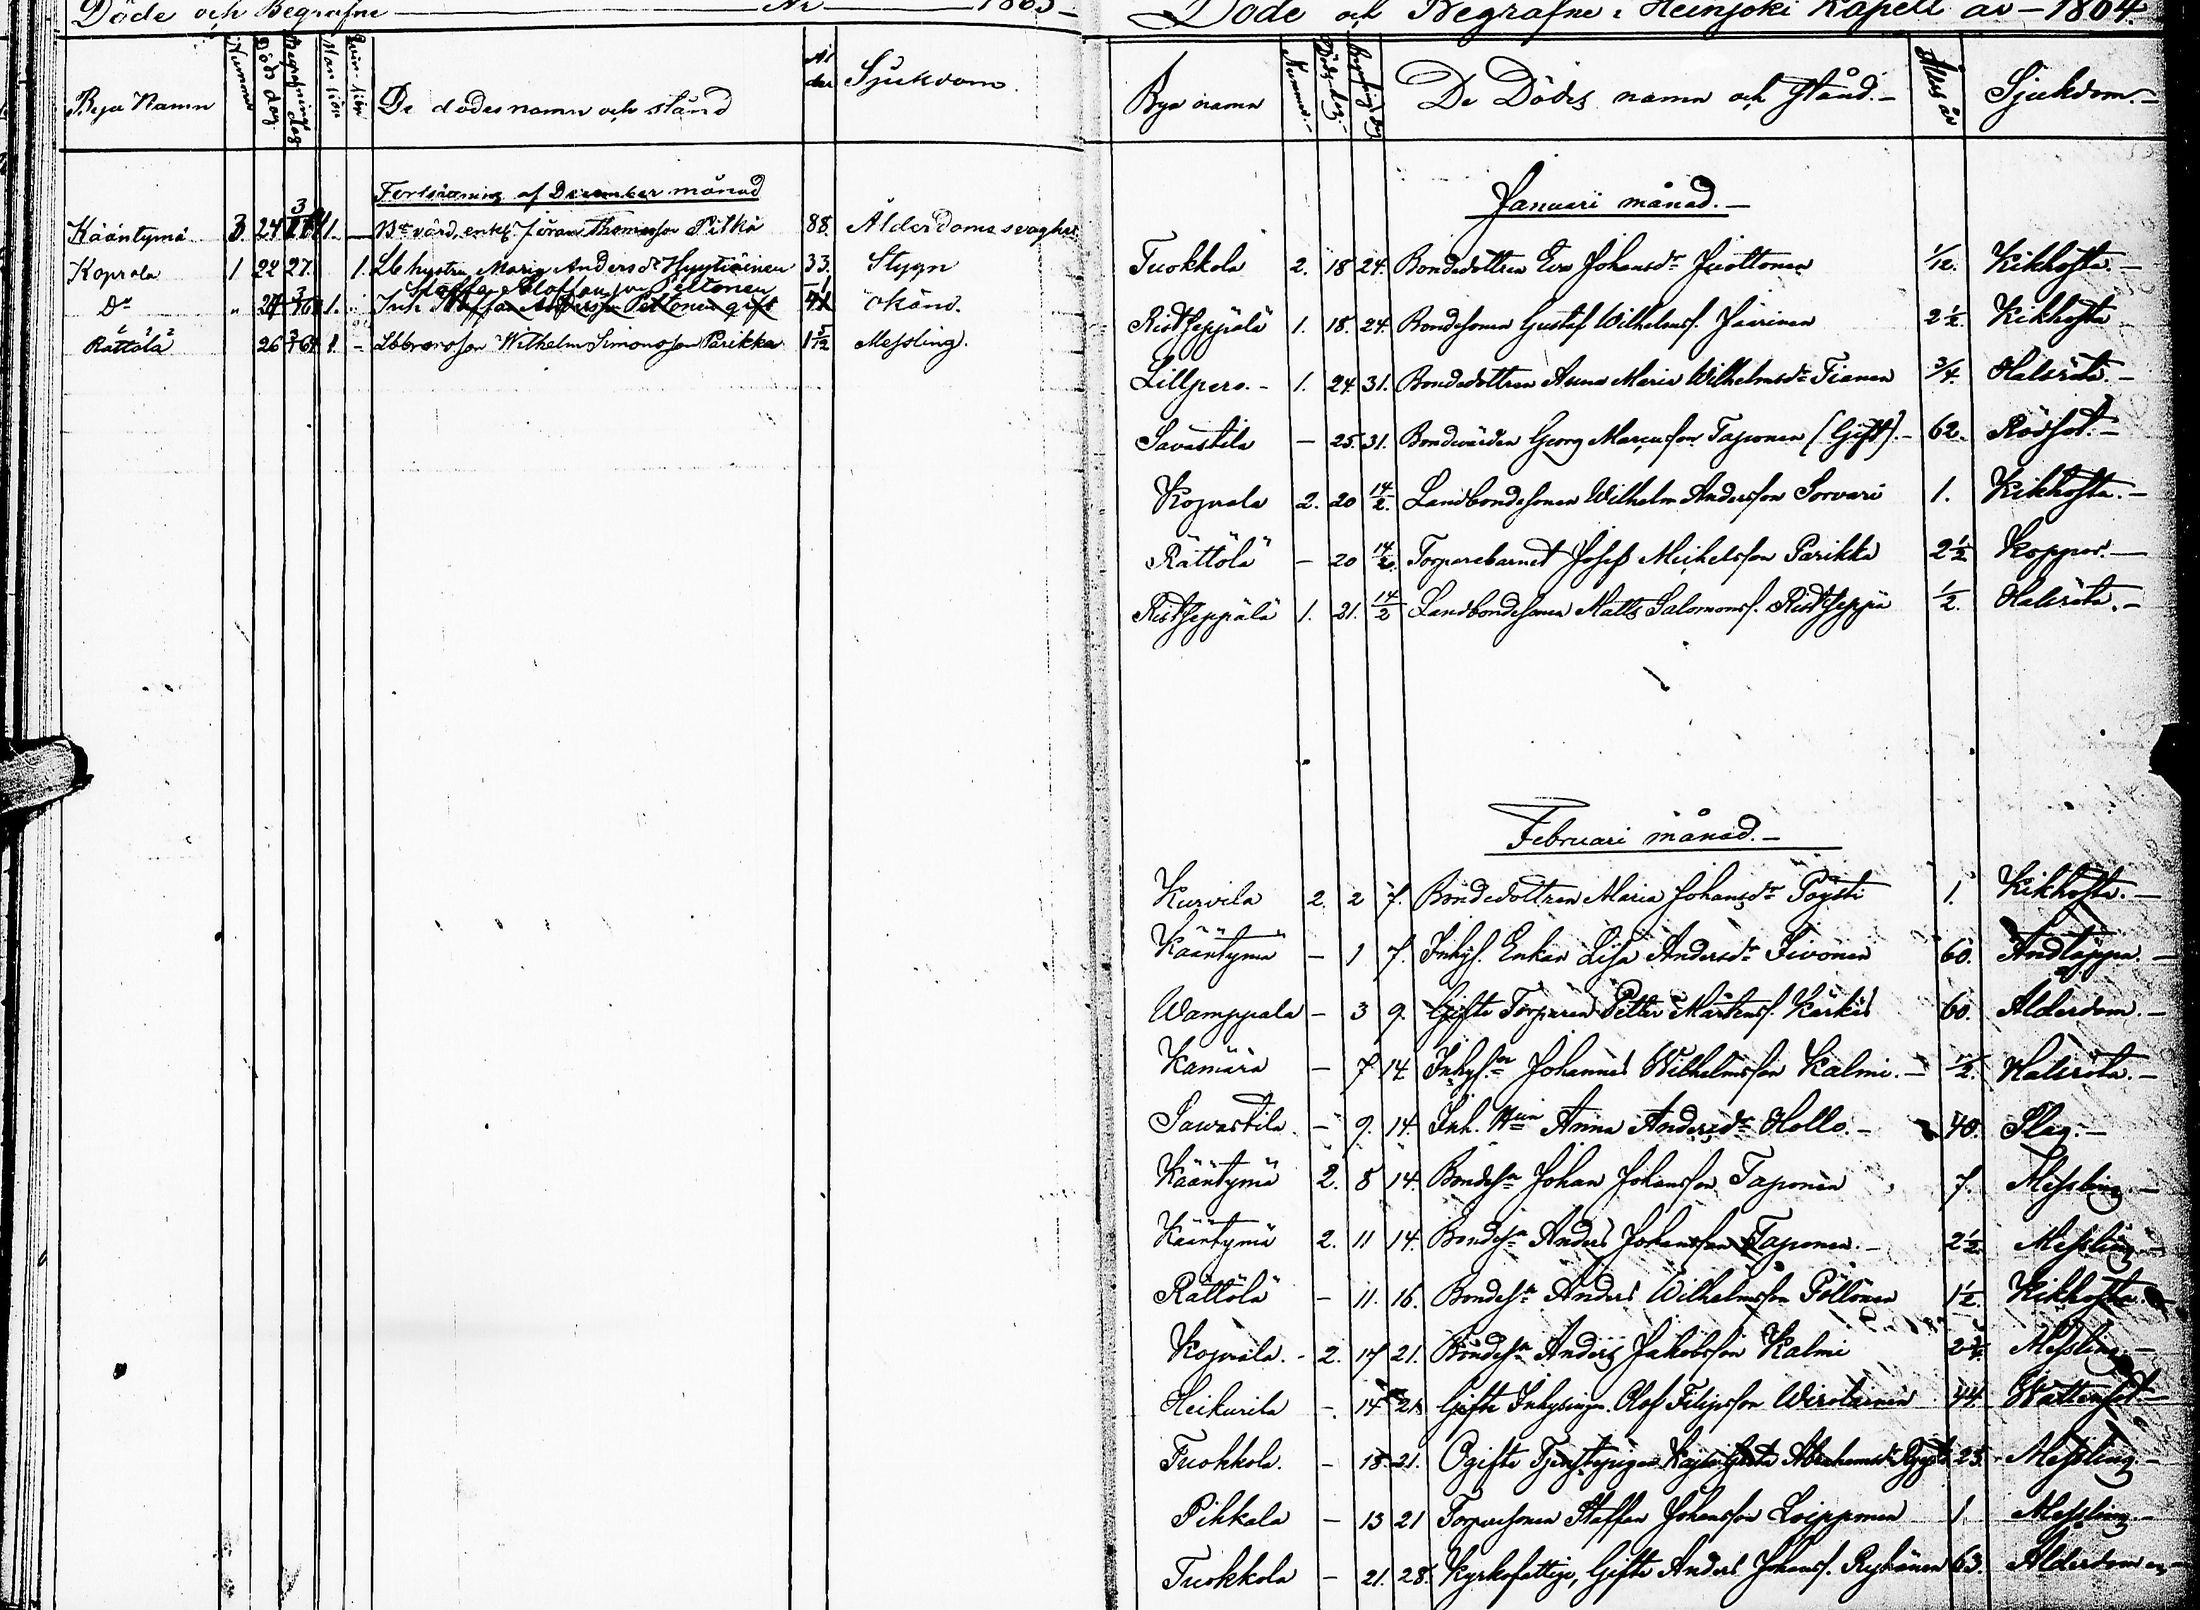 Döde och Begrafne År 1863
Byа Namn Nummer Döds dag Begrafnings dag Man kön Qvin kön De dödes namn och stånd Ål der Sjukdom.
Fortsättning af December månad
Kääntymä 3. 24 1. — Thomasson Pitkä 88. Ålderdoms svaghet
Koprala 1. 22 27. 1. Lb hustru Maria Andersdr Hyytiäinen 33. Stygn
Staffan Peltonen
Do " 1. Inh. Staffan Andersson Peltonen gift okänd.
Rättölä 26 1. - Wilhelm Simonsson Parikka 1 5/12 Messling.
Döde och Begrafne i Heinjoki Kapell år – 1864.
Bya namn Nummer.- Dödsdag.- Begrafn.dag De Dödes namn och stånd.- Ålders år Sjukdom.-
Januari månad.-
Tuokkola 2. 18 24. Bondedottren Eva Johansdr Juottonen 1/12. Kikhosta.-
Ristseppälä 1. 18. 24. Bondesonen Gustaf Wilhelmsf. Jäärinen 2 1/2. Kikhosta
Lillpero.- 1. 24 31. Bondedottren Anna Maria Wilhelmsdr Tianen 3/4. Halsröta.-
Savastila — 25. 31. Bondevärden Georg Marcusson Taponen (Gift).- 62. Rödsot.-
Koprala 2. 20 14/2. Landbondesonen Wilhelm Andersson Sorvari 1. Kikhosta.-
Rättölä — 20 14/2. Torparebarnet Josef Michelsson Parikka 2 1/2 Koppor.—
Ristseppälä 1. 21. 14/2 Landbondesonen Matts Salomonsf. Ristseppä 1/2. Halsröta.-
Februari månad.-
Kurvila 2. 2 7. Bondedottren Maria Johansdr Pöysti 1. Kikhosta.—
Kääntymä — 1 7. Inhys. Enkan Lisa Andersdr Sivonen 60. Andtäppa.—
Wamppala — 3 9. Gifte Torparen Petter Mårtensf. Kärkäs 60. Ålderdom.—
Kämärä — 7 14. Inhys.son Johannes Wilhelmsson Kalmi.- 1/2. Halsröta.—
Sawastila — 9. 14. Inh. Anna Andersdr Hollo.- 40. Slag.—
Kääntymä 2. 8 14. Bondesn Johan Johansson Taponen 7. Messling.—
Kääntymä 2. 11 14. Bondesn Anders Johansson Taponen.- 2 1/2. Messling.—
Rättölä — 11. 16. Bondesn Anders Wilhelmsson Pöllönen 1 1/2. Kikhosta
Koprala.- 2. 17 21. Bondesn Anders Jakobsson Kalmi Messling.—
Heikurila — 14 21. Gifte Inhysingen Olof Filipsson Wirolainen 44. Wattensot.—
Tuokkola. — 18. 21. Ogifte Tjenstepigan Kajsa Abrahamsdr 23. Messling.—
Pihkala — 13 21 Torparesonen Staffan Johansson Loipponen 1 Messling.—
Tuokkola — 21. 28. Kyrkofattige, Gifte Anders Johansf. Rykänen 63. Ålderdom